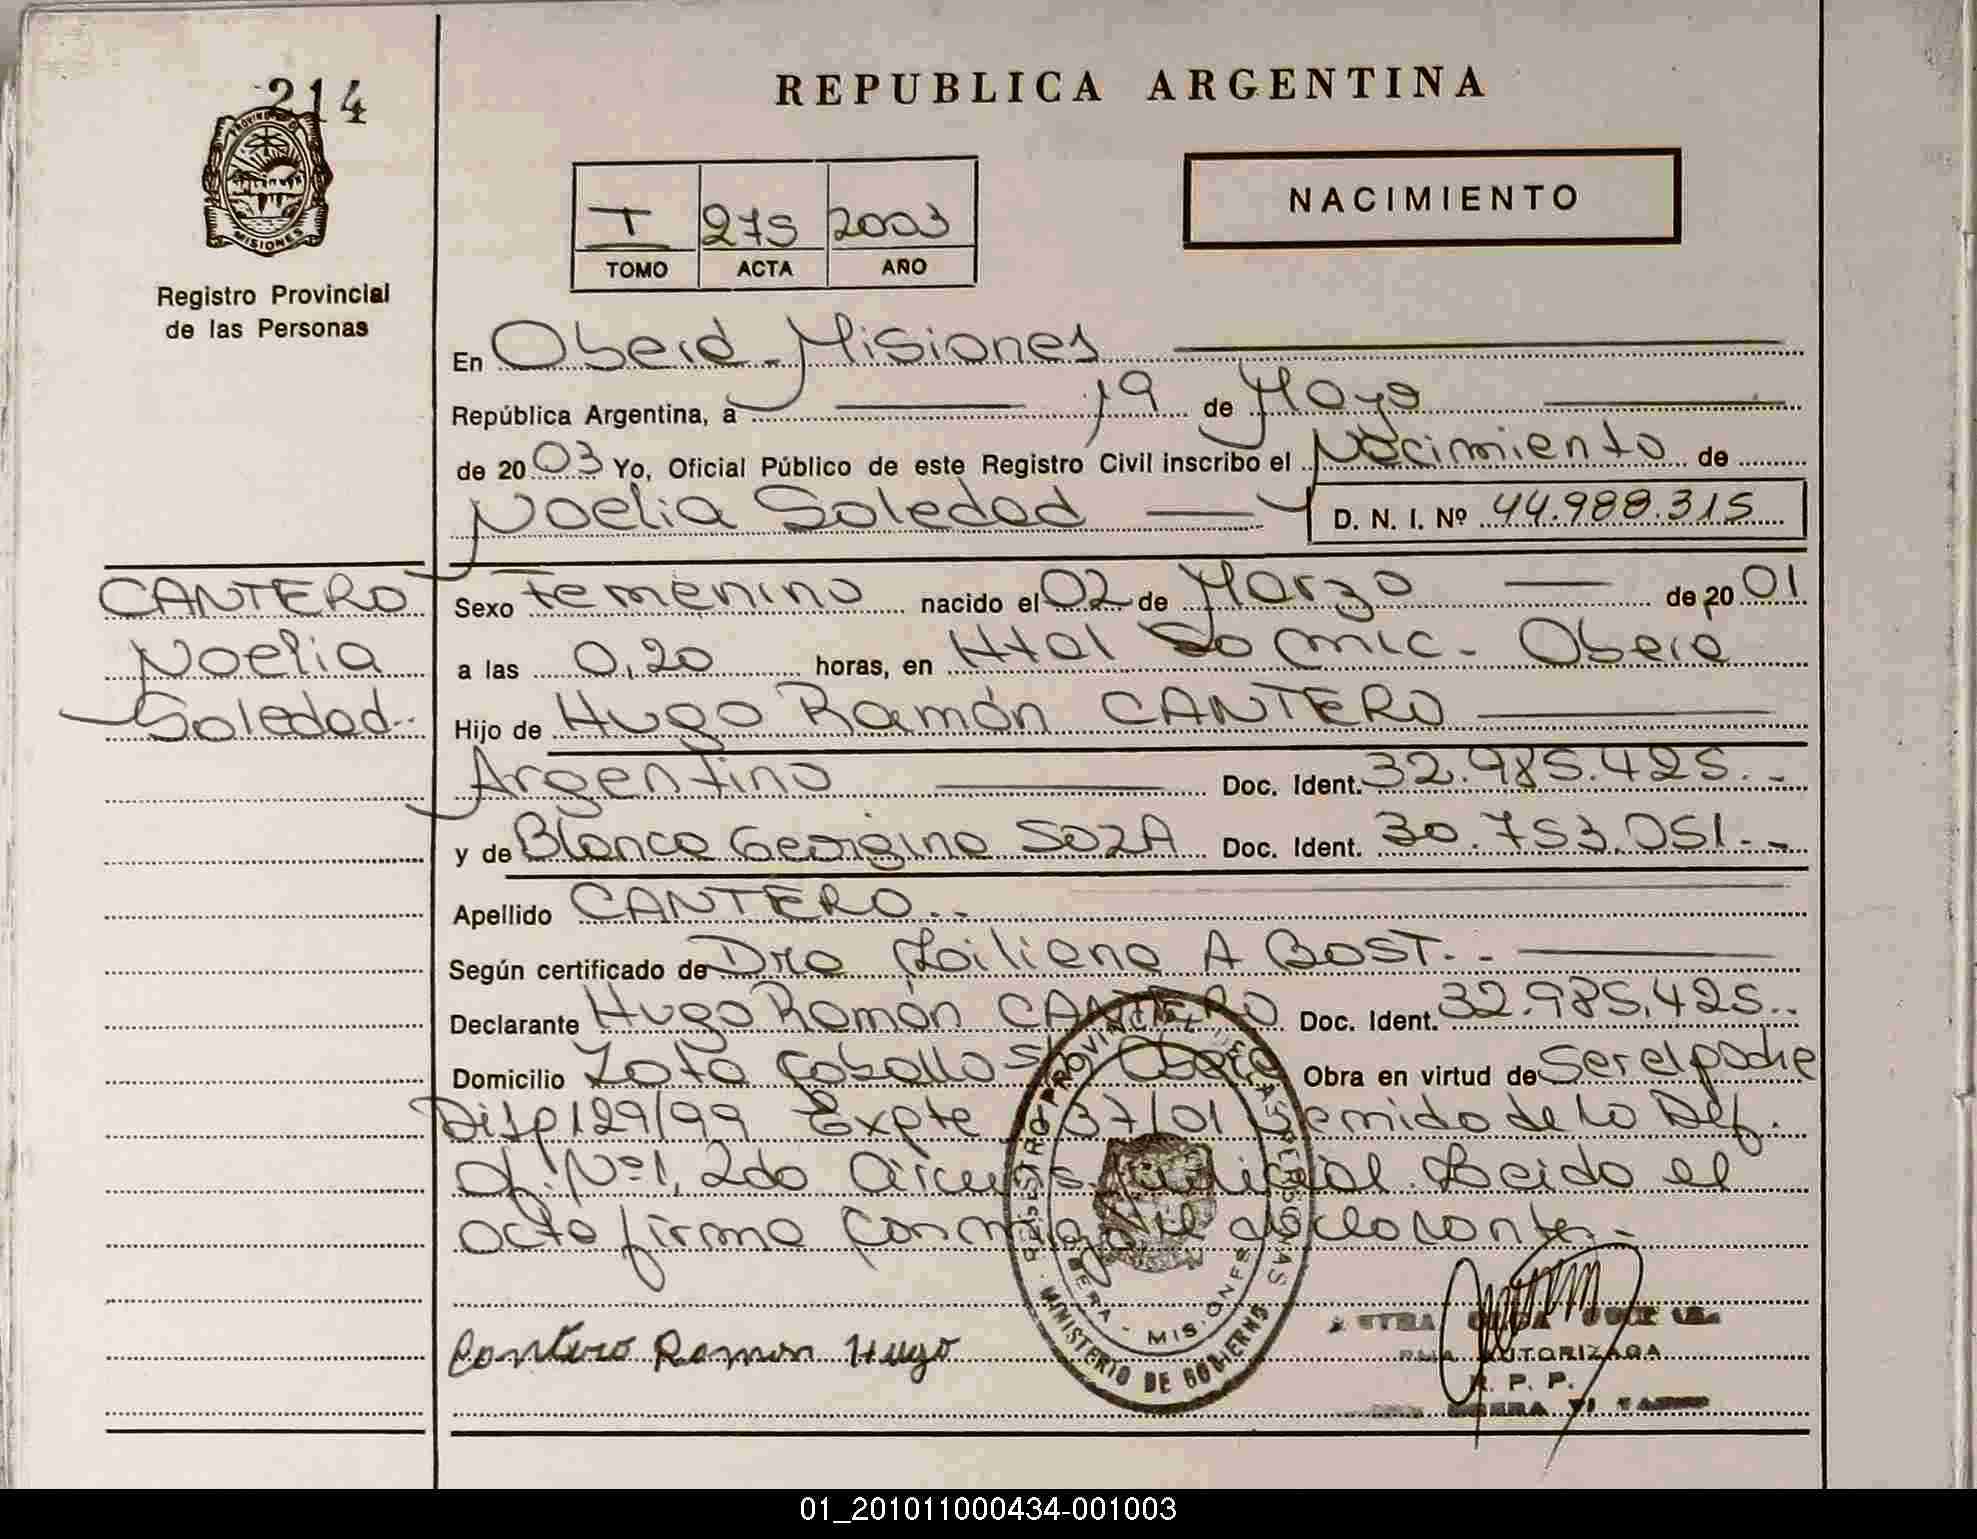 214
PROVINCIA D
MISIONES
Registro Provincial
de las Personas
REPUBLICA ARGENTINA
T 275 2003
TOMO ACTA AÑO
NACIMIENTO
En Oberá - Misiones
República Argentina, a 19 de Mayo
de 2003 Yo, Oficial Público de este Registro Civil inscribo el Nacimiento de
Noelia Soledad D. N. I. Nº 44.988.315
CANTERO
Noelia
Soledad..
Sexo Femenino nacido el 02 de Marzo de 2001
a las 0,20 horas, en Htal Samic - Oberá
Hijo de Hugo Ramón CANTERO
Argentino Doc. Ident. 32.985.425.-
y de Blanca Georgina SOZA Doc. Ident. 30.753.051.-
Apellido CANTERO..
Según certificado de Dra Liliana A BOST.-
Declarante Hugo Ramón CANTERO Doc. Ident. 32.985.425..
Domicilio Zota Caballos Oberá Obra en virtud de ser el padre
Disp 129/99 Expte 37/01 de la Def.
Of. Nº1, 2da Circuns. Judicial. Leido el
acta firma conmigo el declarante.-
Cantero Ramon Hugo
REGISTRO PROVINCIAL DE LAS PERSONAS
OBERA - MISIONES
MINISTERIO DE GOBIERNO
AUTORIZADA
R. P. P.
01_201011000434-001003